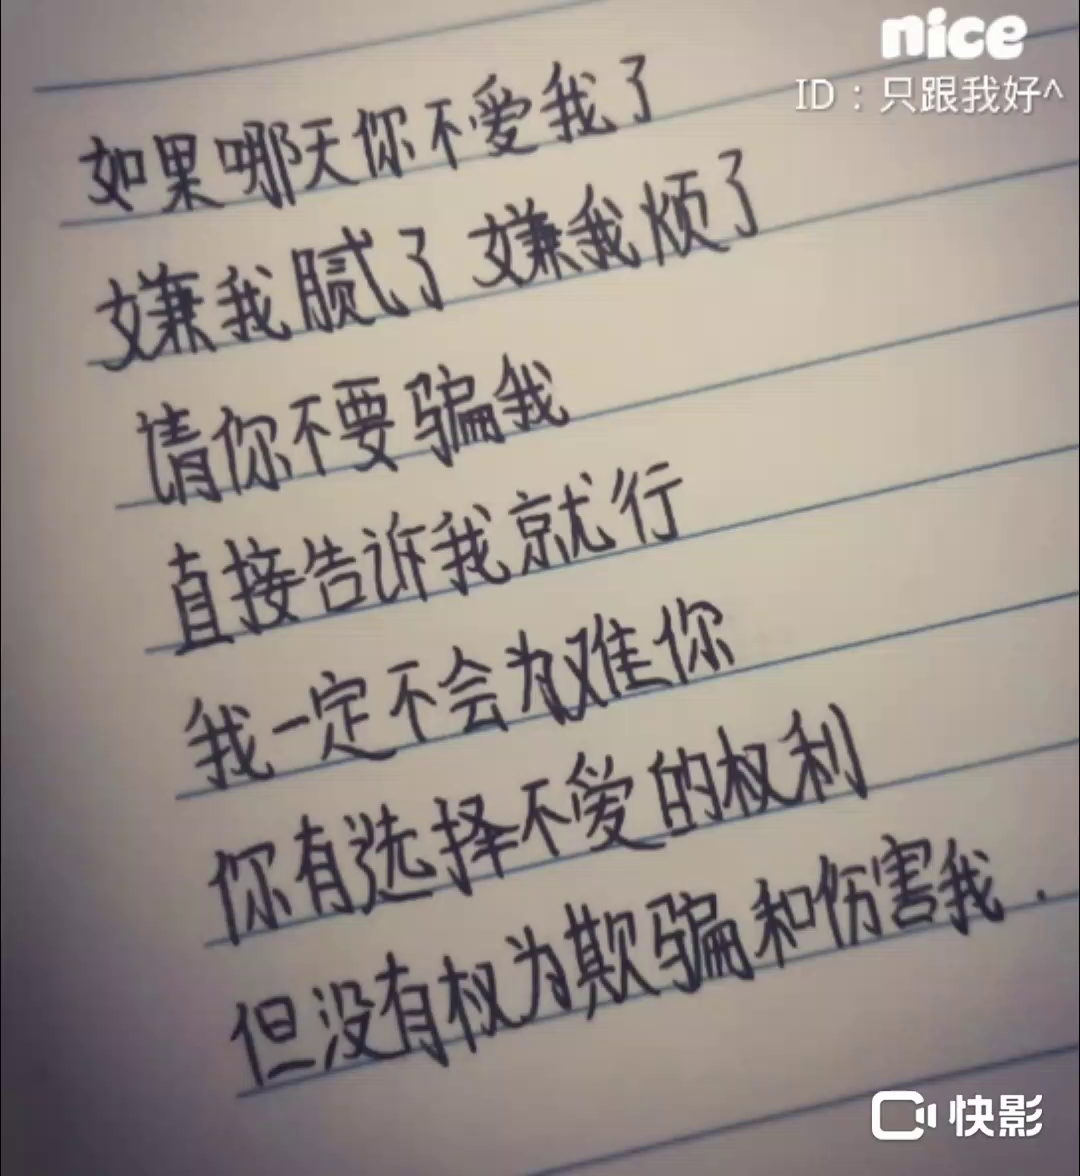 nice
ID：只跟我好^
如果哪天你不爱我了
嫌我腻了 嫌我烦了
请你不要骗我
直接告诉我就行
我一定不会为难你
你有选择不爱的权利
但没有权为欺骗和伤害我.
快影